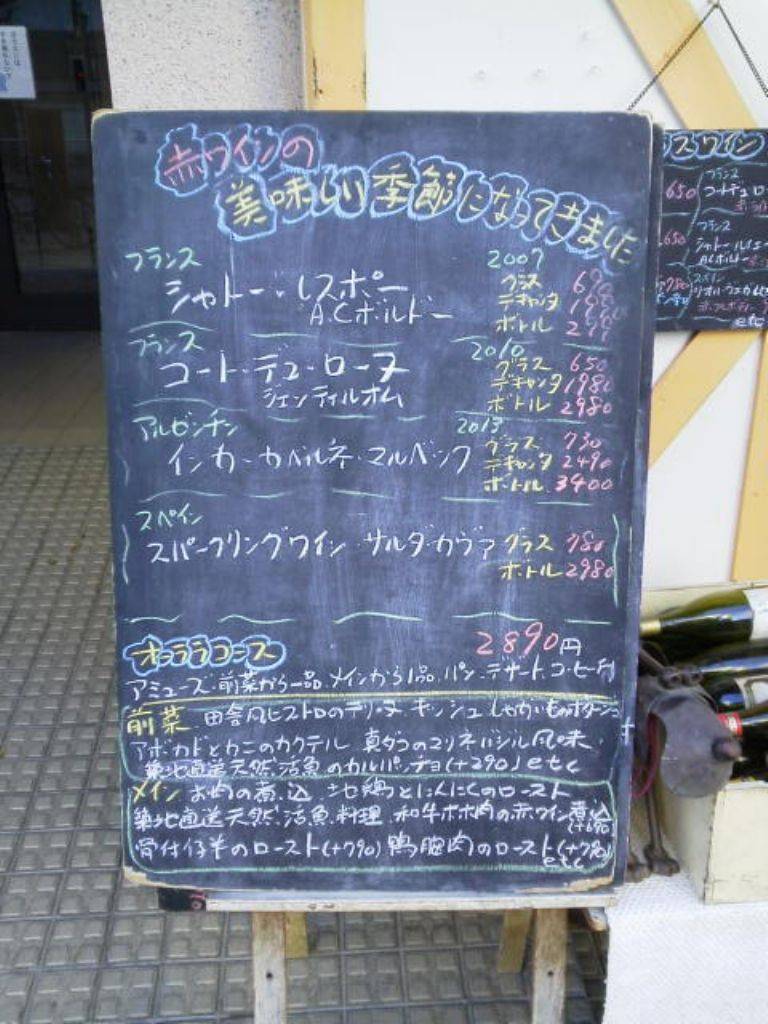 赤ワインの
美味しい季節になってきました
フランス 2007
シャトー・レスポー グラス
A.C ボルドー デキャンタ
ボトル
フランス 2010
コート・デュ・ローヌ グラス 650
ジェンティルオム デキャンタ 1980
ボトル 2980
アルゼンチン 2013
インカ・カベルネ・マルベック グラス 730
デキャンタ 2490
ボトル 3400
スペイン
スパークリングワイン・サルダ・カヴァ グラス 780
ボトル 2980
オララコース 2890円
アミューズ・前菜から一品・メインから1品・パン・デザート・コーヒー付
前菜 田舎風ビストロのテリーヌ キッシュ じゃがいものポタージュ
アボカドとカニのカクテル 真ダコのマリネバジル風味・
築地直送天然活魚のカルパッチョ(+290) etc
メイン お肉の煮込 地鶏とにんにくのロースト
築地直送天然活魚料理 和牛ホホ肉の赤ワイン煮込
(+690)
骨付仔羊のロースト(+790) 鴨胸肉のロースト(+790)
etc
スワイン
フランス
650 コートデュロー
フランス
650 シャトー
ACボルドー
スペイン
etc